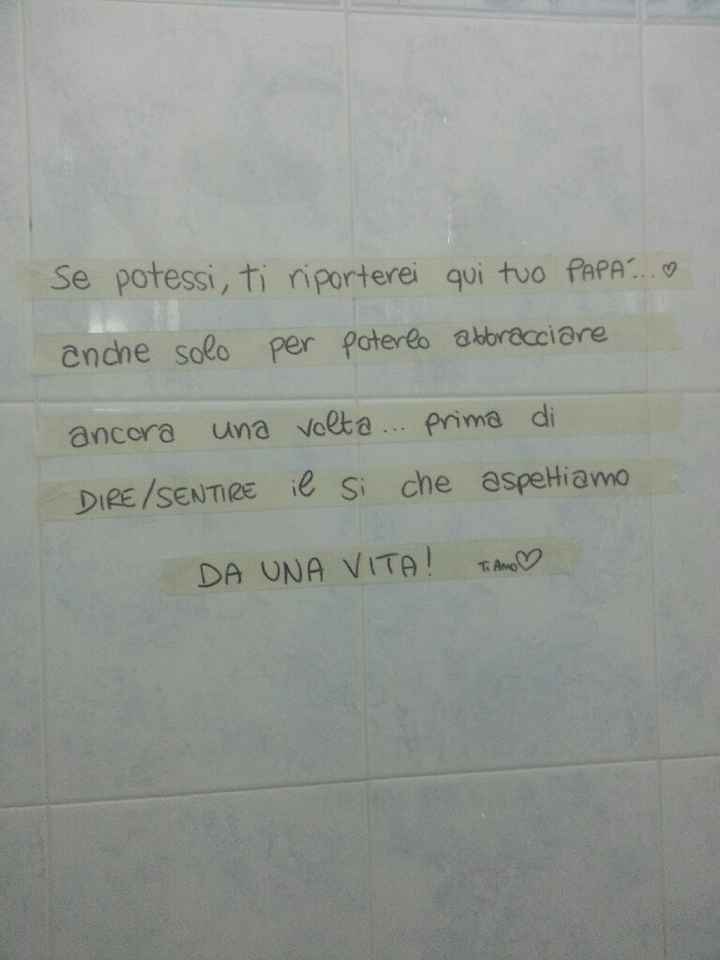 Se potessi, ti riporterei qui tuo PAPA'... ♡
anche solo per poterlo abbracciare
ancora una volta... prima di
DIRE/SENTIRE il si che aspettiamo
DA UNA VITA! Ti Amo ♡